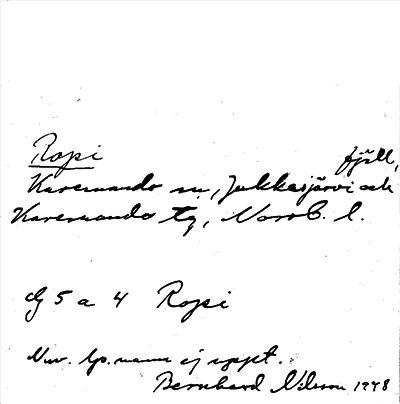 Ropi fjäll,
Karesuando sn, Jukkasjärvi och
Karesuando tg, Norrb. l.
5 a 4 Ropi
Nuv. lp. namn ej uppt.
Bernhard Nilsson 1948